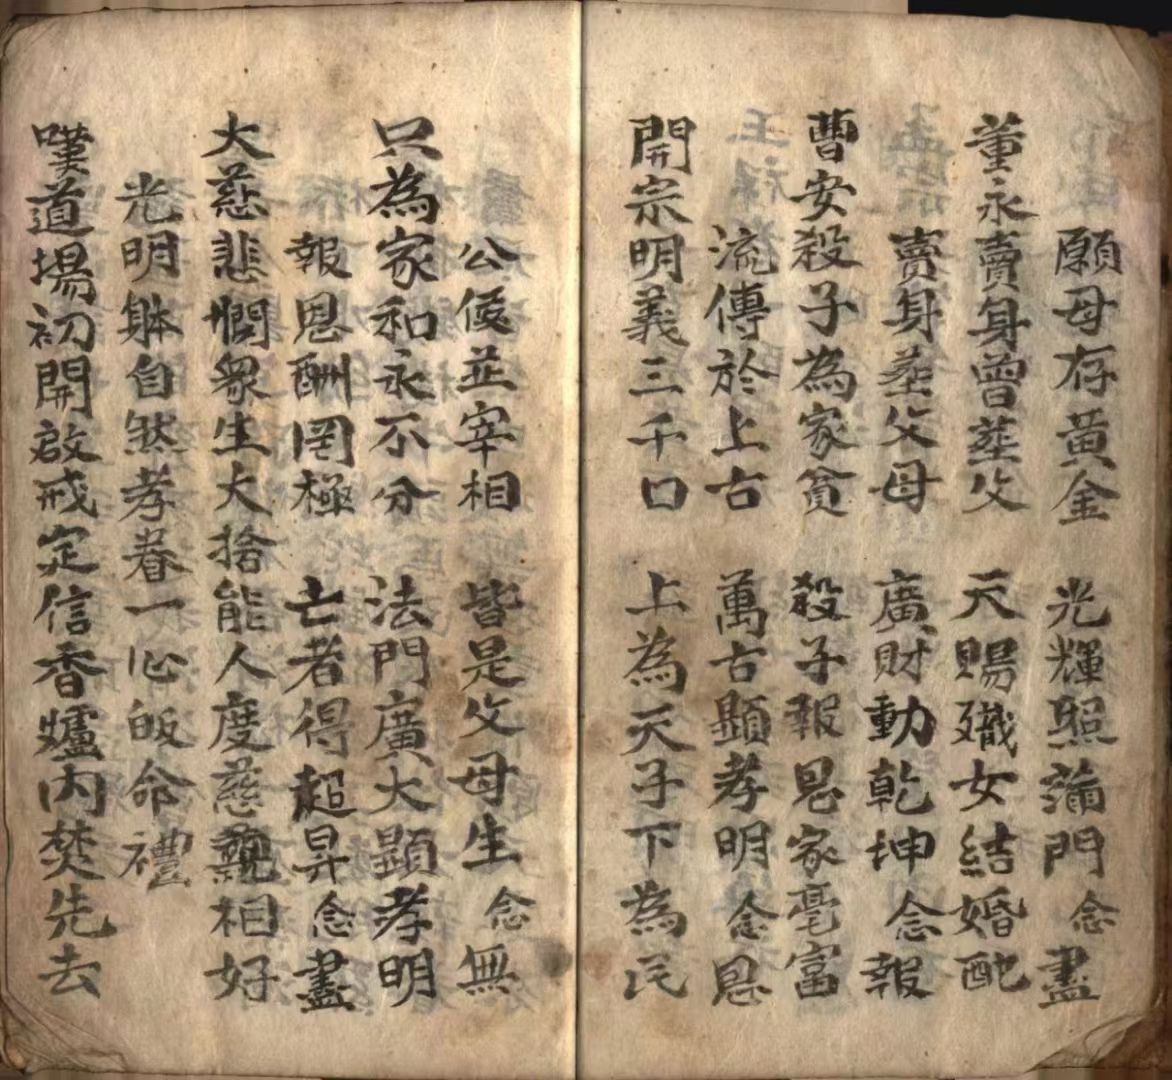 願母存黄金　光輝照蒲門念盡
董永賣身曾塟父　天賜織女結婚配
賣身塟父母　廣財動乾坤念報
曹安殺子為家貧　殺子報恩家毫富
流傳於上古　萬古顕孝明念恩
開宗明義三千口　上為天子下為民
公侯並宰相　皆是父母生念無
只為家和永不分　法門廣大顕孝明
報恩酬罔極　亡者得超昇念盡
大慈悲憫衆生大捨能人度慈親相好
光明躰自然孝眷一心皈命禮
嘆道場初開啟戒定信香爐内焚先去